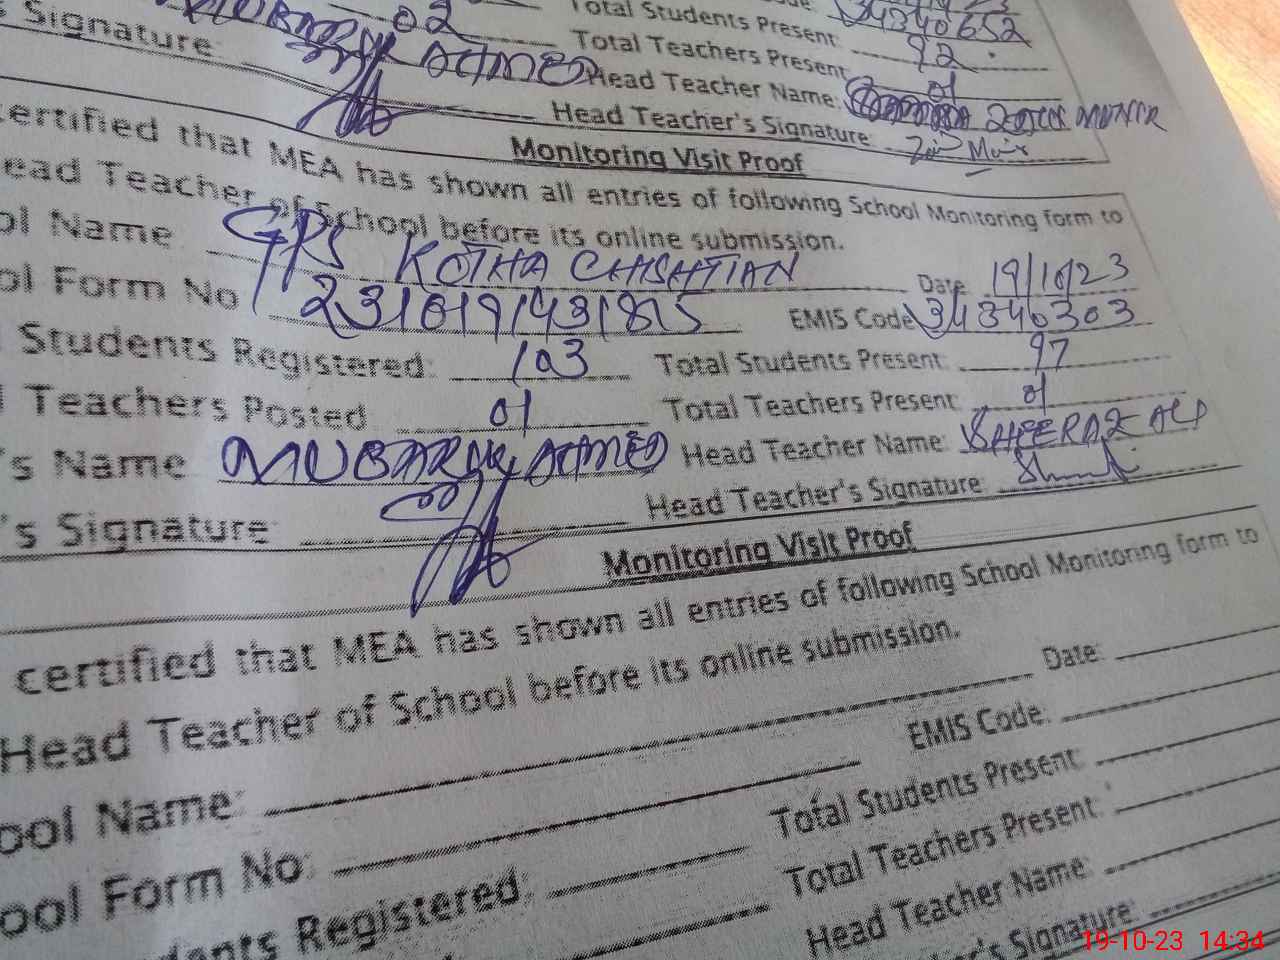 Total Students Present:
Signature: 02 34340652
Total Teachers Present 92
AHMED Head Teacher Name: 01
Head Teacher's Signature: MUNIR
Monitoring Visit Proof
ertified that MEA has shown all entries of following School Monitoring form to
ead Teacher of School before its online submission.
ol Name GPS KOTHA CHISHTIAN Date 19/10/23
ol Form No EMIS Code 34340303
Students Registered: 103 Total Students Present: 97
Teachers Posted 01 Total Teachers Present: 01
's Name MUBARAK AHMED Head Teacher Name: SHEERAZ ALI
's Signature: Head Teacher's Signature:
Monitoring Visit Proof
certified that MEA has shown all entries of following School Monitoring form to
Head Teacher of School before its online submission.
ool Name: Date:
ool Form No: EMIS Code:
dents Registered: Total Students Present:
Total Teachers Present:
Head Teacher Name:
er's Signature:
19-10-23 14:34